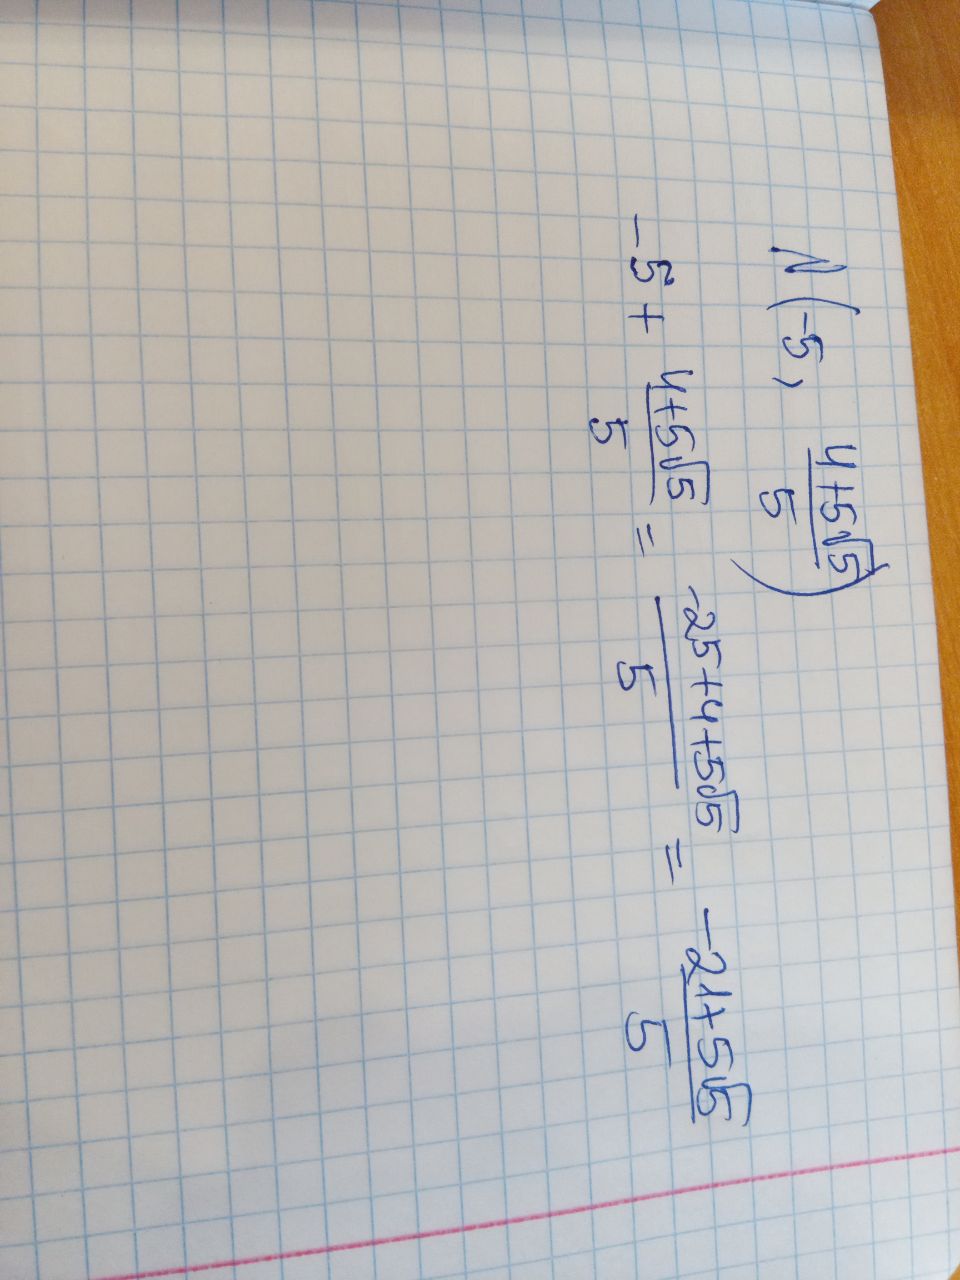 N(-5, (4+5√5)/5)
-5 + (4+5√5)/5 = (-25+4+5√5)/5 = (-21+5√5)/5